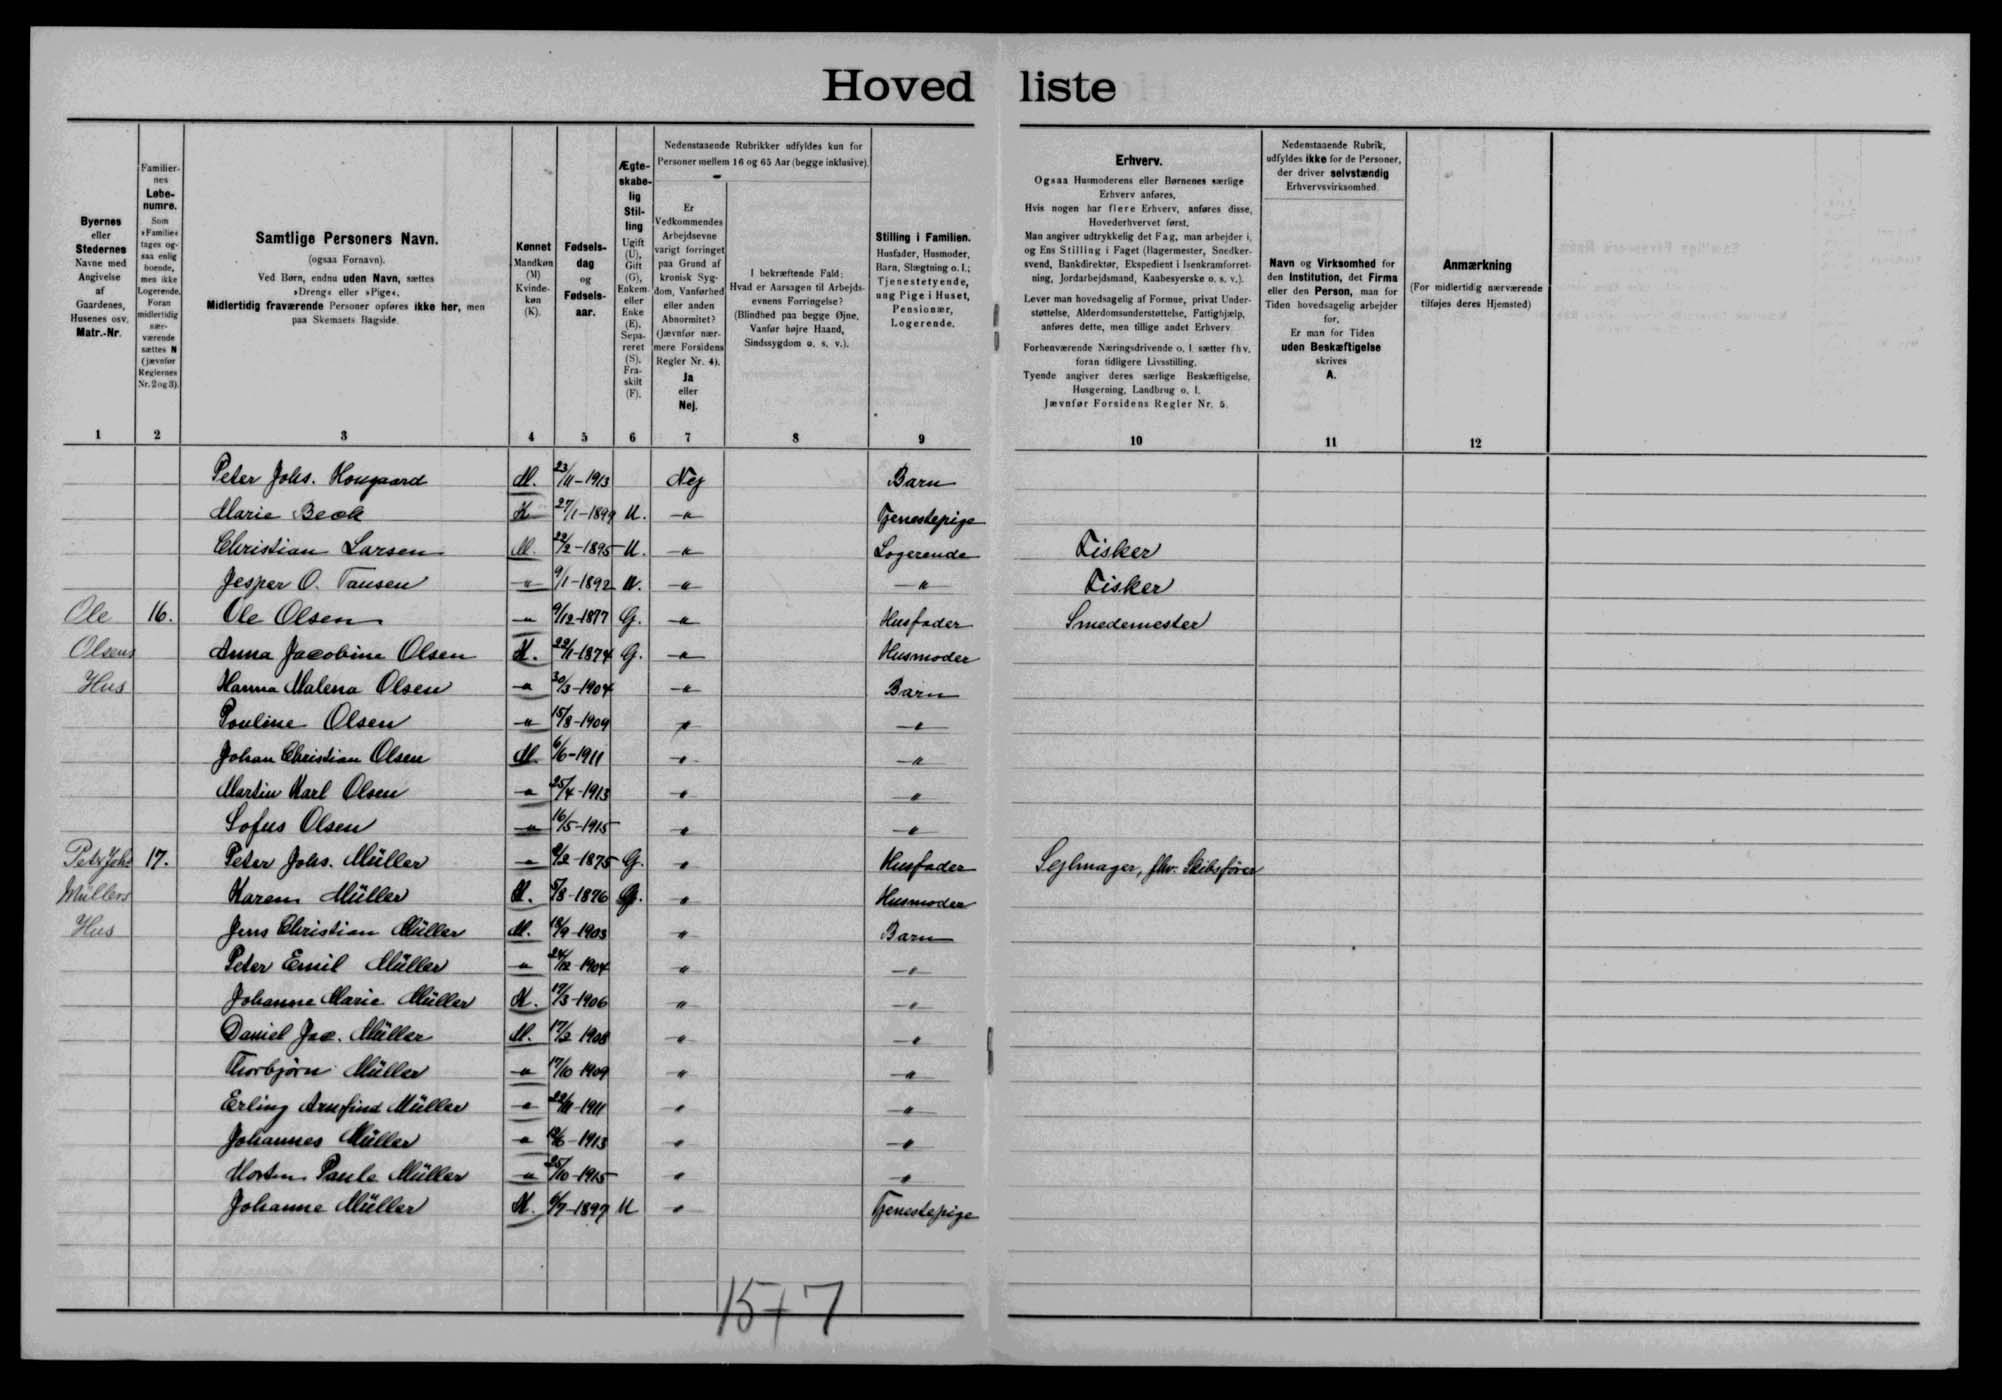 Hovedliste
Byernes eller Stedernes Navne med Angivelse af Gaardenes, Husenes osv. Matr.-Nr.
Familiernes Løbenumre. Som »Familie« tages ogsaa enlig boende, men ikke Logerende. Foran midlertidig nærværende sættes N (jævnfør Reglernes Nr. 2 og 3).
Samtlige Personers Navn. (ogsaa Fornavn). Ved Børn, endnu uden Navn, sættes »Dreng« eller »Pige«. Midlertidig fraværende Personer opføres ikke her, men paa Skemaets Bagside.
Kønnet Mandkøn (M) Kvindekøn (K).
Fødselsdag og Fødselsaar.
Ægteskabelig Stilling Ugift (U), Gift (G), Enkemand eller Enke (E), Separeret (S), Fraskilt (F).
Nedenstaaende Rubrikker udfyldes kun for Personer mellem 16 og 65 Aar (begge inklusive).
Er Vedkommendes Arbejdsevne varigt forringet paa Grund af kronisk Sygdom, Vanførhed eller anden Abnormitet? (Jævnfør nærmere Forsidens Regler Nr. 4). Ja eller Nej.
I bekræftende Fald: Hvad er Aarsagen til Arbejdsevnens Forringelse? (Blindhed paa begge Øjne, Vanfør højre Haand, Sindssygdom o. s. v.).
Stilling i Familien. Husfader, Husmoder, Barn, Slægtning o. l.; Tjenestetyende, ung Pige i Huset, Pensionær, Logerende.
Erhverv. Ogsaa Husmoderens eller Børnenes særlige Erhverv anføres. Hvis nogen har flere Erhverv, anføres disse, Hovederhvervet først. Man angiver udtrykkelig det Fag, man arbejder i, og Ens Stilling i Faget (Bagermester, Snedkersvend, Bankdirektør, Ekspedient i Isenkramforretning, Jordarbejdsmand, Kaabesyerske o. s. v.). Lever man hovedsagelig af Formue, privat Understøttelse, Alderdomsunderstøttelse, Fattighjælp, anføres dette, men tillige andet Erhverv. Forhenværende Næringsdrivende o. l. sætter fhv. foran tidligere Livsstilling. Tyende angiver deres særlige Beskæftigelse, Husgerning, Landbrug o. l. Jævnfør Forsidens Regler Nr. 5.
Nedenstaaende Rubrik, udfyldes ikke for de Personer, der driver selvstændig Erhvervsvirksomhed.
Navn og Virksomhed for den Institution, det Firma eller den Person, man for Tiden hovedsagelig arbejder for. Er man for Tiden uden Beskæftigelse skrives A.
Anmærkning (For midlertidig nærværende tilføjes deres Hjemsted)
1 2 3 4 5 6 7 8 9 10 11 12
Peter Johs. Hougaard M. 23/11-1913 Nej Barn
Marie Beck K 27/1-1899 U. -"- Tjenestepige
Christian Larsen M. 22/2-1895 U. -"- Logerende Fisker
Jesper O. Tausen -"- 9/1-1892 U. -"- -"- Fisker
Ole 16. Ole Olsen -"- 9/12-1877 G. -"- Husfader Smedemester
Olsens Anna Jacobine Olsen K. 22/1-1874 G. -"- Husmoder
Hus Hanna Malena Olsen -"- 30/3-1904 -"- Barn
Pouline Olsen -"- 15/8-1909 " -"-
Johan Christian Olsen M 6/6-1911 " -"-
Martin Karl Olsen -"- 25/4-1913 " -"-
Sofus Olsen -"- 16/5-1915 " -"-
Peter Johs 17. Peter Johs. Müller -"- 9/2-1875 G. " Husfader Sejlmager, fhv. Skibsfører
Müllers Karen Müller K. 5/8-1876 G. " Husmoder
Hus Jens Christian Müller M. 18/9-1903 " Barn
Peter Emil Müller -"- 24/12-1904 " -"-
Johanne Marie Müller K. 17/3-1906 " -"-
Daniel Jac. Müller M. 17/2-1908 " -"-
Thorbjørn Müller -"- 17/10-1909 " -"-
Erling Arnfind Müller -"- 22/11-1911 " -"-
Johannes Müller -"- 12/6-1913 " -"-
Morten Paule Müller -"- 25/10-1915 " -"-
Johanne Müller K. 6/7-1897 U " Tjenestepige
15+7